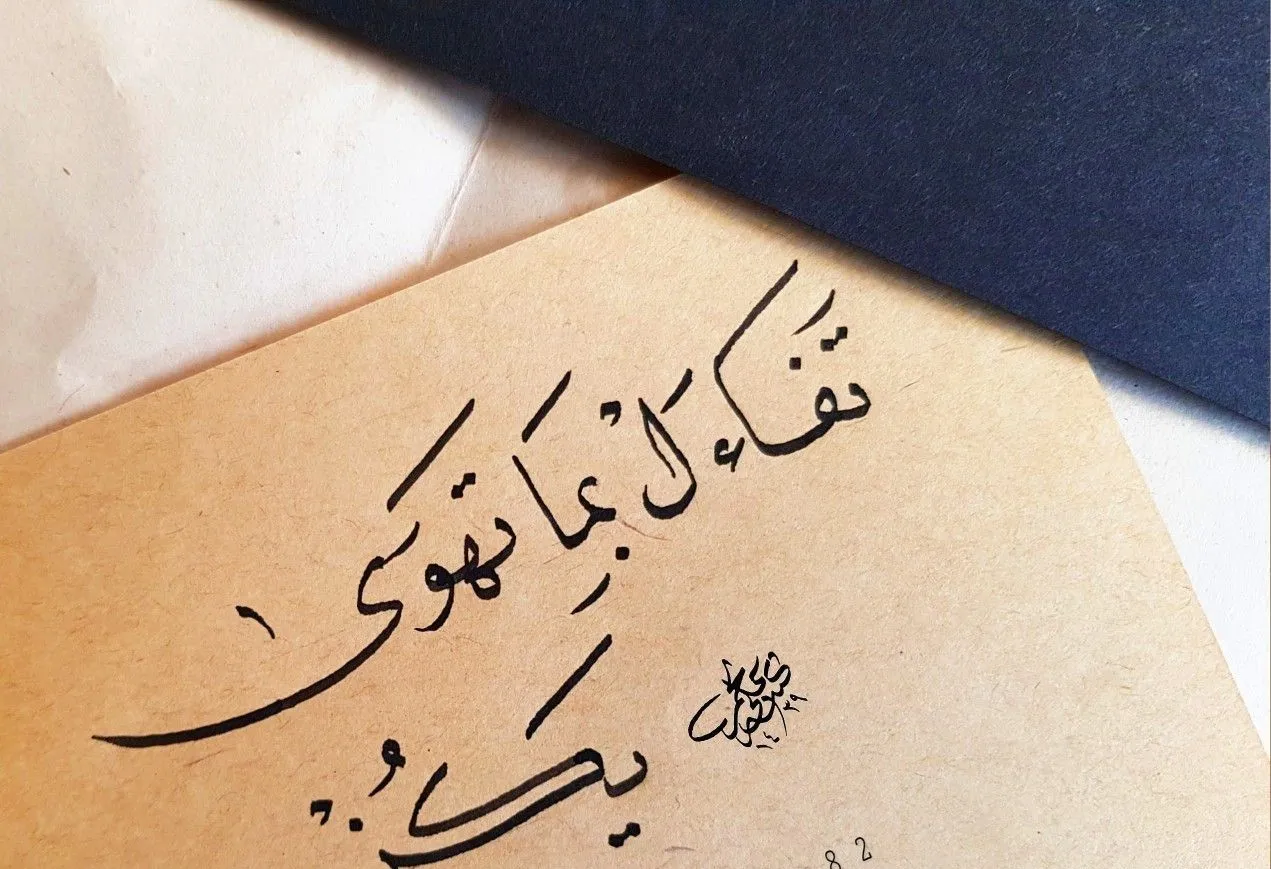 تفاءَلْ بِمَا تَهوَى
يَكُنْ
82